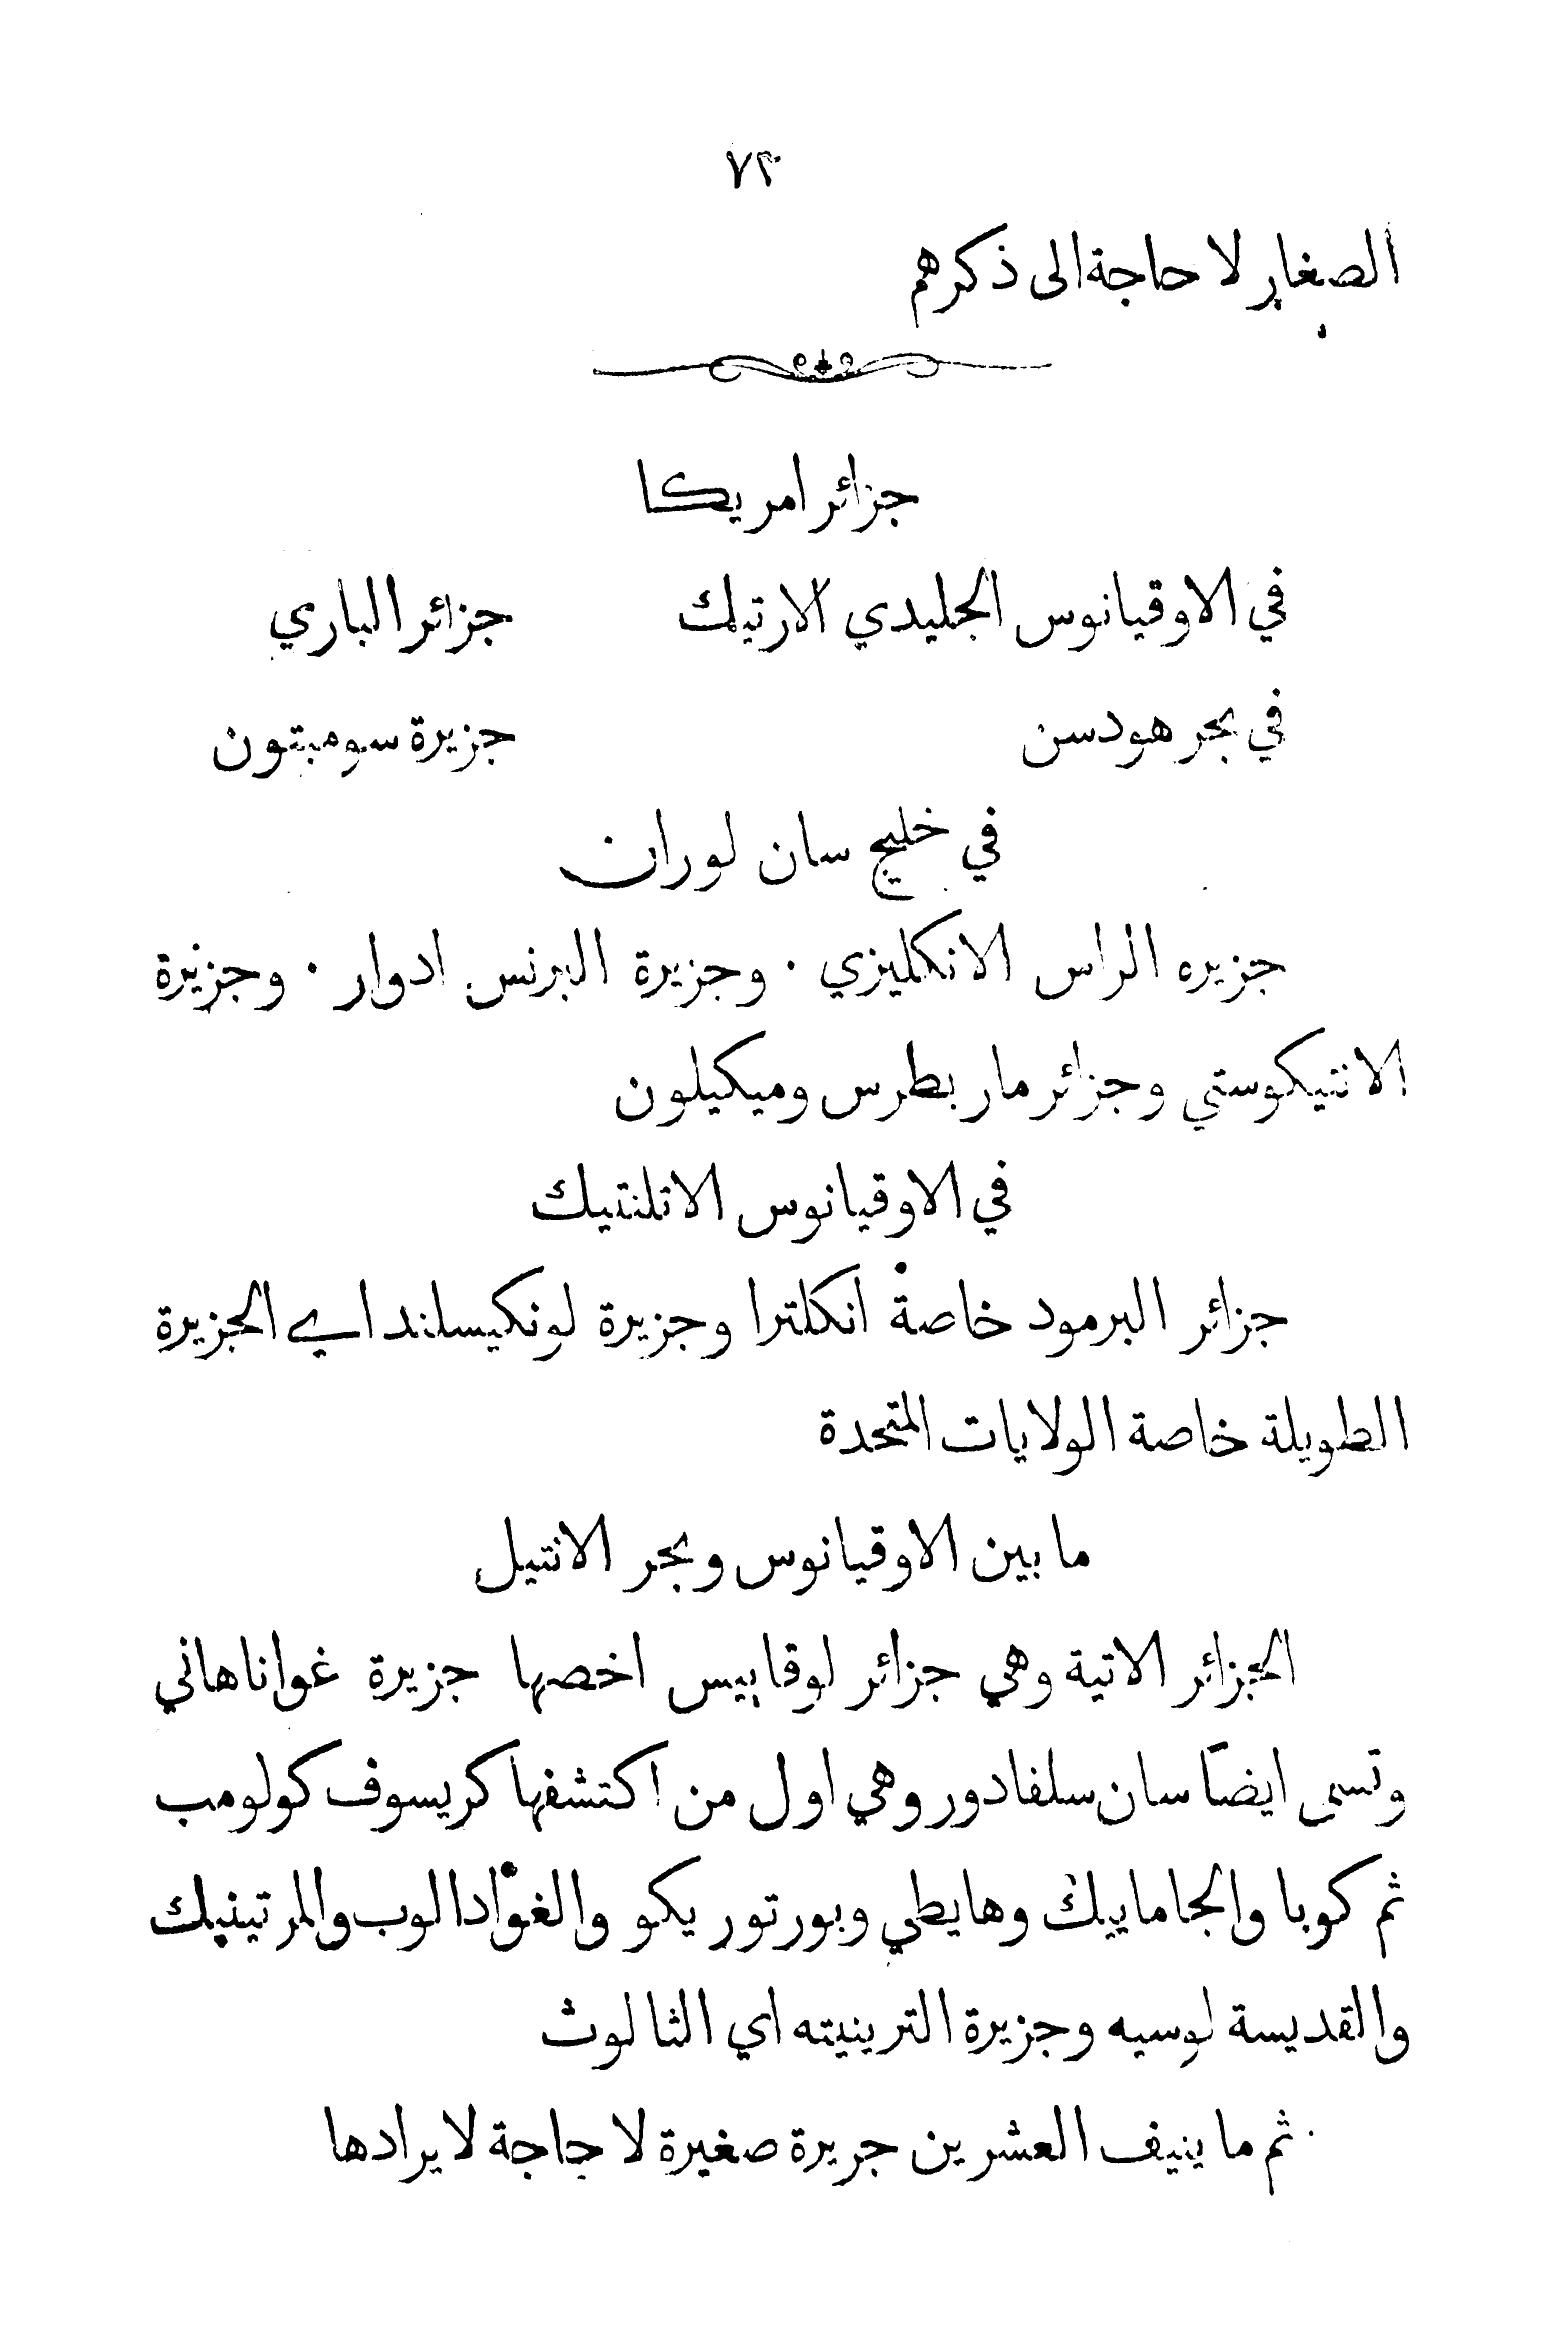 ٧٣
الصغار لا حاجة الى ذكرهم
جزائر امريكا
في الاوقيانوس الجليدي الارتيك جزائر الباري
في بحر هودسن جزيرة سومبتون
في خليج سان لوران
جزيره الراس الانكليزي · وجزيرة البرنس ادوار · وجزيرة
الانتيكوستي وجزائر مار بطرس وميكيلون
في الاوقيانوس الاتلنتيك
جزائر البرمود خاصة انكلترا وجزيرة لونكيسلند اي الجزيرة
الطويلة خاصة الولايات المتحدة
ما بين الاوقيانوس وبحر الانتيل
الجزائر الاتية وهي جزائر لوقاييس اخصها جزيرة غواناهاني
وتسمى ايضاً سان سلفادور وهي اول من اكتشفها كريسوف كولومب
ثم كوبا والجاماييك وهايطي وبورتوريكو والغوادالوب والمرتينيك
والقديسة لوسيه وجزيرة الترينيته اي الثالوث
· ثم ما ينيف العشرين جريرة صغيرة لا حاجة لايرادها